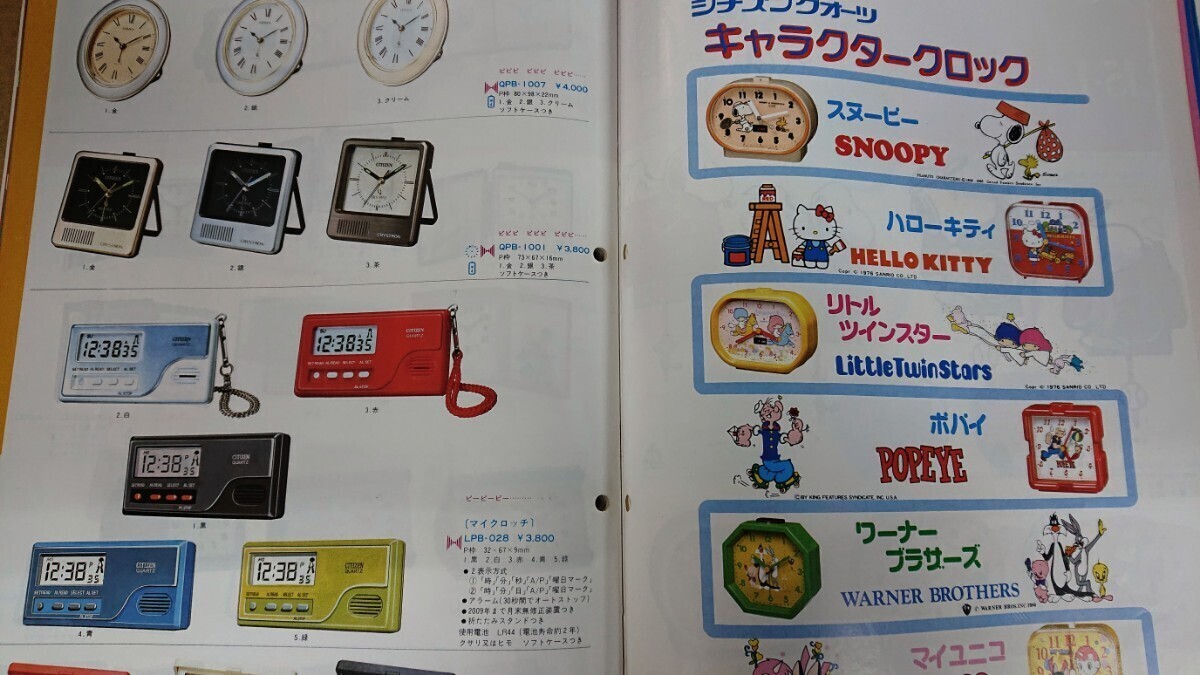 1.金
2.銀
3.クリーム
ピピピ ピピピ ピピピ……
QPB-1007 ¥4,000
P枠 80×98×22mm
1.金 2.銀 3.クリーム
ソフトケースつき
CITIZEN
1.金
2.銀
3.茶
ピピピ ピピピ ピピピ……
QPB-1001 ¥3,800
P枠 73×67×16mm
1.金 2.銀 3.茶
ソフトケースつき
12:38 35
CITIZEN
QUARTZ
2.白
12:38 35
CITIZEN
QUARTZ
3.赤
12:38 35
CITIZEN
QUARTZ
1.黒
ピーピーピー………
〔マイクロッチ〕
LPB-028 ¥3,800
P枠 32×67×9mm
1.黒 2.白 3.赤 4.青 5.緑
●2表示方式
①「時」「分」「秒」「A/P」「曜日マーク」
②「時」「分」「日」「A/P」「曜日マーク」
●アラーム(30秒間でオートストップ)
●2009年まで月末無修正装置つき
●折たたみスタンドつき
使用電池 LR44(電池寿命約2年)
クサリ又はヒモ ソフトケースつき
12:38 35
CITIZEN
QUARTZ
4.青
12:38 35
CITIZEN
QUARTZ
5.緑
シチズンクオーツ
キャラクタークロック
スヌーピー
SNOOPY
ハローキティ
HELLO KITTY
Copr. © 1976 SANRIO CO., LTD.
リトル
ツインスター
LittleTwinStars
Copr. © 1976 SANRIO CO., LTD.
ポパイ
POPEYE
©BY KING FEATURES SYNDICATE, INC. U.S.A.
ワーナー
ブラザーズ
WARNER BROTHERS
マイユニコ